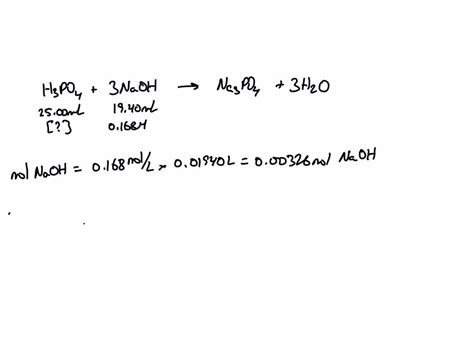 H₃PO₄ + 3NaOH → Na₃PO₄ + 3H₂O
25.00mL 19.40mL
[?] 0.168M
mol NaOH = 0.168 mol/L × 0.01940L = 0.00326 mol NaOH